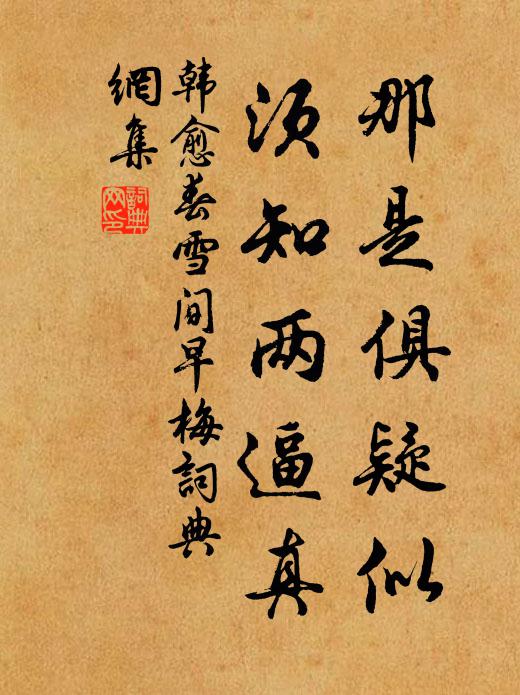 那是俱疑似
须知两逼真
韩愈春雪间早梅詞典
網集
詞典
网印